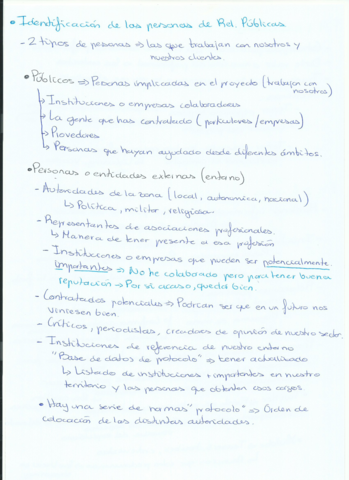 • Identificación de las personas de Rel. Públicas
- 2 tipos de personas => las que trabajan con nosotros y
nuestros clientes
• Públicos => Personas implicadas en el proyecto (trabajan con
nosotros)
↳ Instituciones o empresas colaboradoras
↳ La gente que has contratado (particulares/empresas)
↳ Provedores
↳ Personas que hayan ayudado desde diferentes ámbitos.
• Personas o entidades externas (entorno)
- Autoridades de la zona (local, autonómica, nacional)
↳ Política, militar, religiosa
- Representantes de asociaciones profesionales.
↳ Manera de tener presente a esa profesión
- Instituciones o empresas que pueden ser potencialmente
importantes => No he colaborado pero para tener buena
reputación -> Por si acaso, queda bien.
- Contratados potenciales => Podrían ser que en un futuro nos
viniesen bien.
- Críticos, periodistas, creadores de opinión de nuestro sector.
- Instituciones de referencia de nuestro entorno
"Base de datos de protocolo" => tener actualizado
↳ Listado de instituciones + importantes en nuestro
territorio y las personas que obtenten esos cargos.
• Hay una serie de normas "protocolo" => Orden de
colocación de las distintas autoridades.